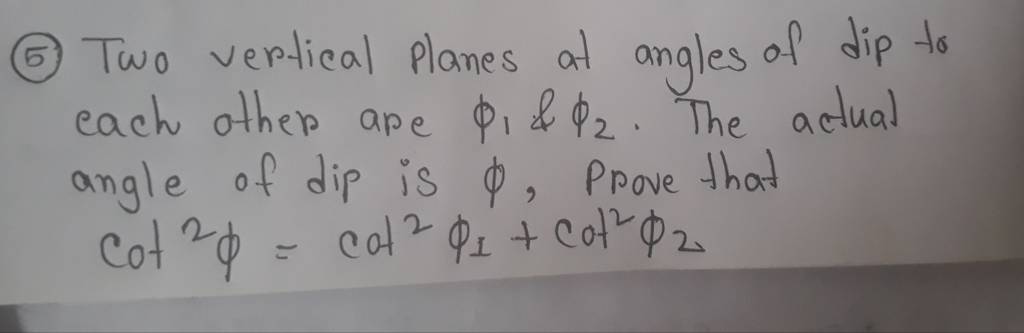 ⑤ Two vertical planes at angles of dip to
each other are φ₁ & φ₂. The actual
angle of dip is φ, prove that
cot²φ = cot²φ₁ + cot²φ₂